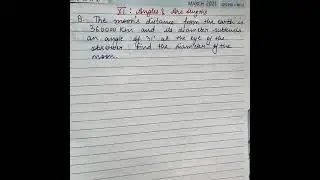 MARCH 2021
XI : Angles & Arc lengths
Q- The moon's distance from the earth is
360000 Km and its diameter subtends
an angle of 31' at the eye of the
observer. Find the diameter of the
moon.